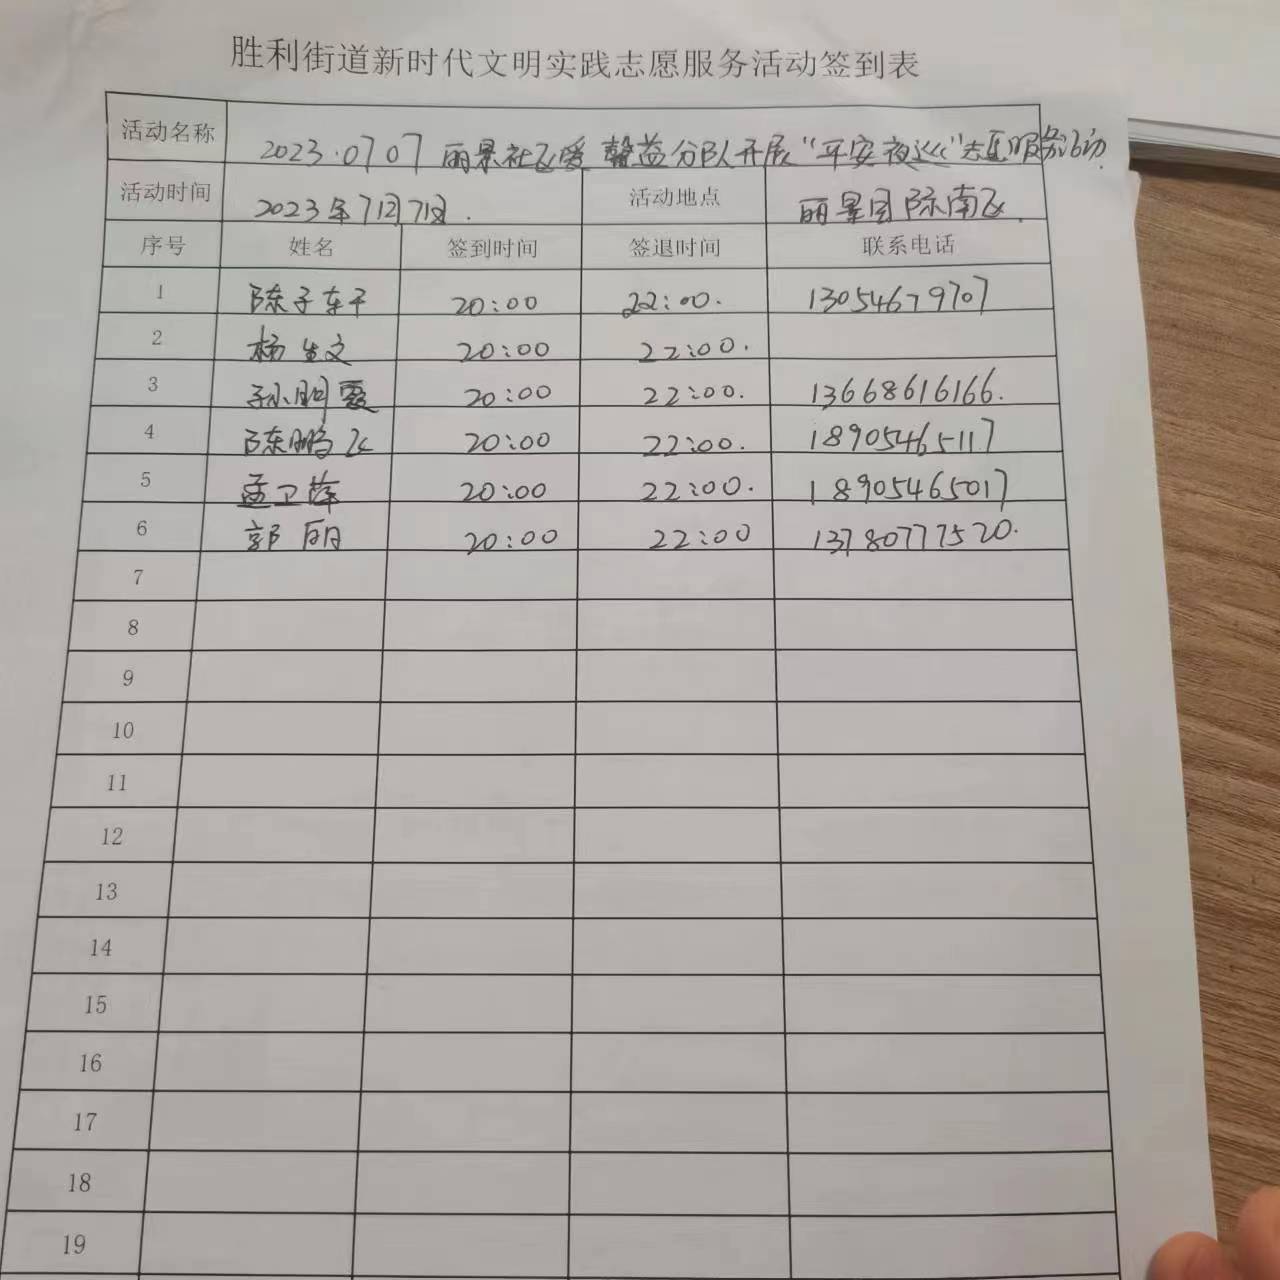 胜利街道新时代文明实践志愿服务活动签到表
活动名称 2023.0707 丽景社区爱馨益分队开展“平安夜巡”志愿服务活动
活动时间 2023年7月7日. 活动地点 丽景园 南区.
序号 姓名 签到时间 签退时间 联系电话
1 陈子车干 20:00 22:00. 13054679707
2 杨生文 20:00 22:00.
3 孙明霞 20:00 22:00. 13668616166.
4 陈鹏飞 20:00 22:00. 18905465117
5 孟卫萍 20:00 22:00. 18905465017
6 郭丽 20:00 22:00 13780777520.
7
8
9
10
11
12
13
14
15
16
17
18
19